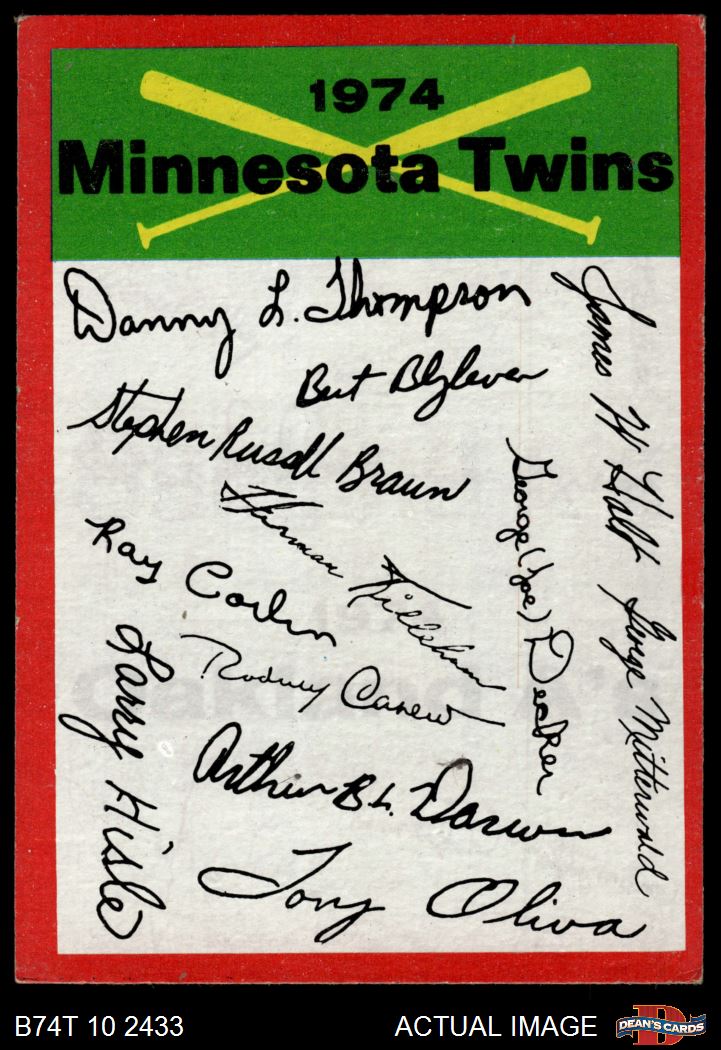 1974
Minnesota Twins
Danny L. Thompson
James W Holt
Bert Blyleven
Stephen Russell Braun
George (Joe) Decker
Harman Killebrew
Ray Corbin
George Mitterwald
Larry Hisle
Rodney Carew
Arthur B L. Darwin
Tony Oliva
B74T 10 2433
ACTUAL IMAGE
D
DEAN'S CARDS